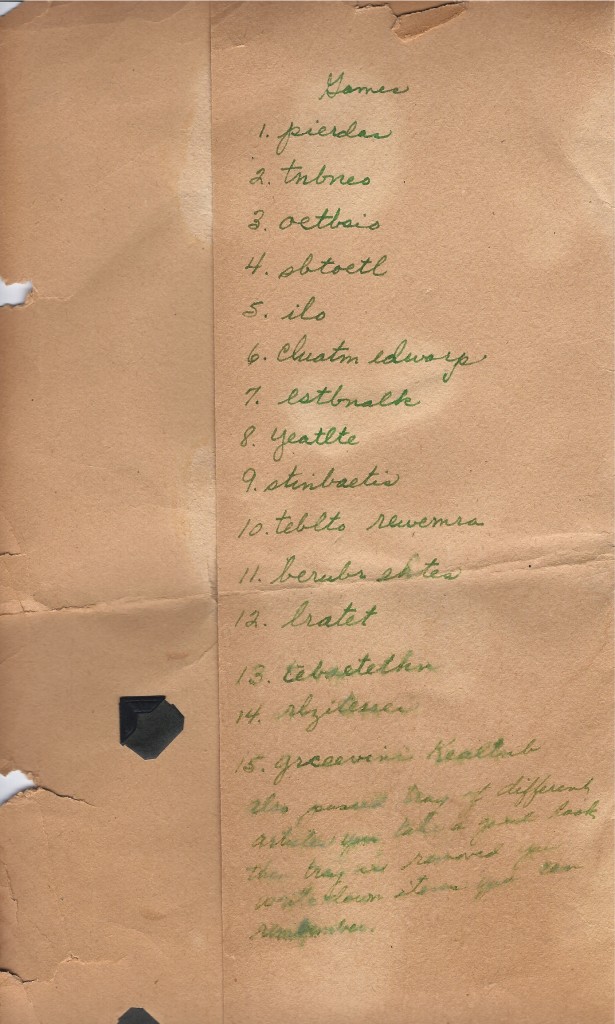 Games
1. pierdas
2. tnbneo
3. oetbsio
4. sbtoetl
5. ilo
6. cluatm edworp
7. estbnalk
8. yeatlte
9. stinbaetis
10. teblto rewemra
11. berubr ehtes
12. lratet
13. tebsetethn
14. rlzitesrei
15. grceevini Kealtnb
also passed tray of different
articles you take a good look
then tray is removed you
write down items you can
remember.